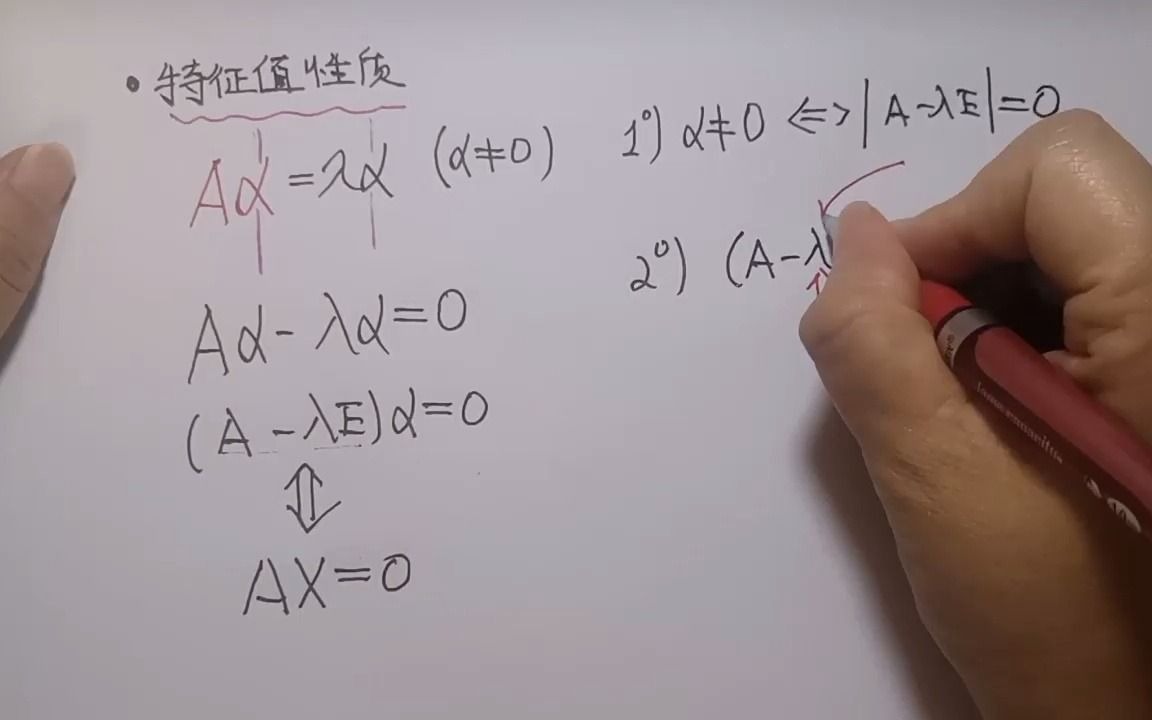 • 特征值性质
Aα = λα (α≠0)
Aα - λα = 0
(A - λE)α = 0
⇕
AX = 0
1°) α≠0 <=> |A-λE|=0
2°) (A-λ